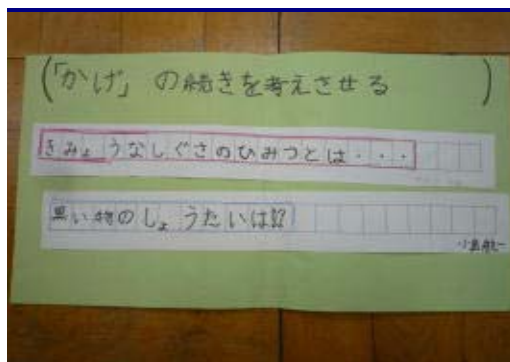 (「かげ」の続きを考えさせる)
きみょうなしぐさのひみつとは・・・
黒い物のしょうたいは!?